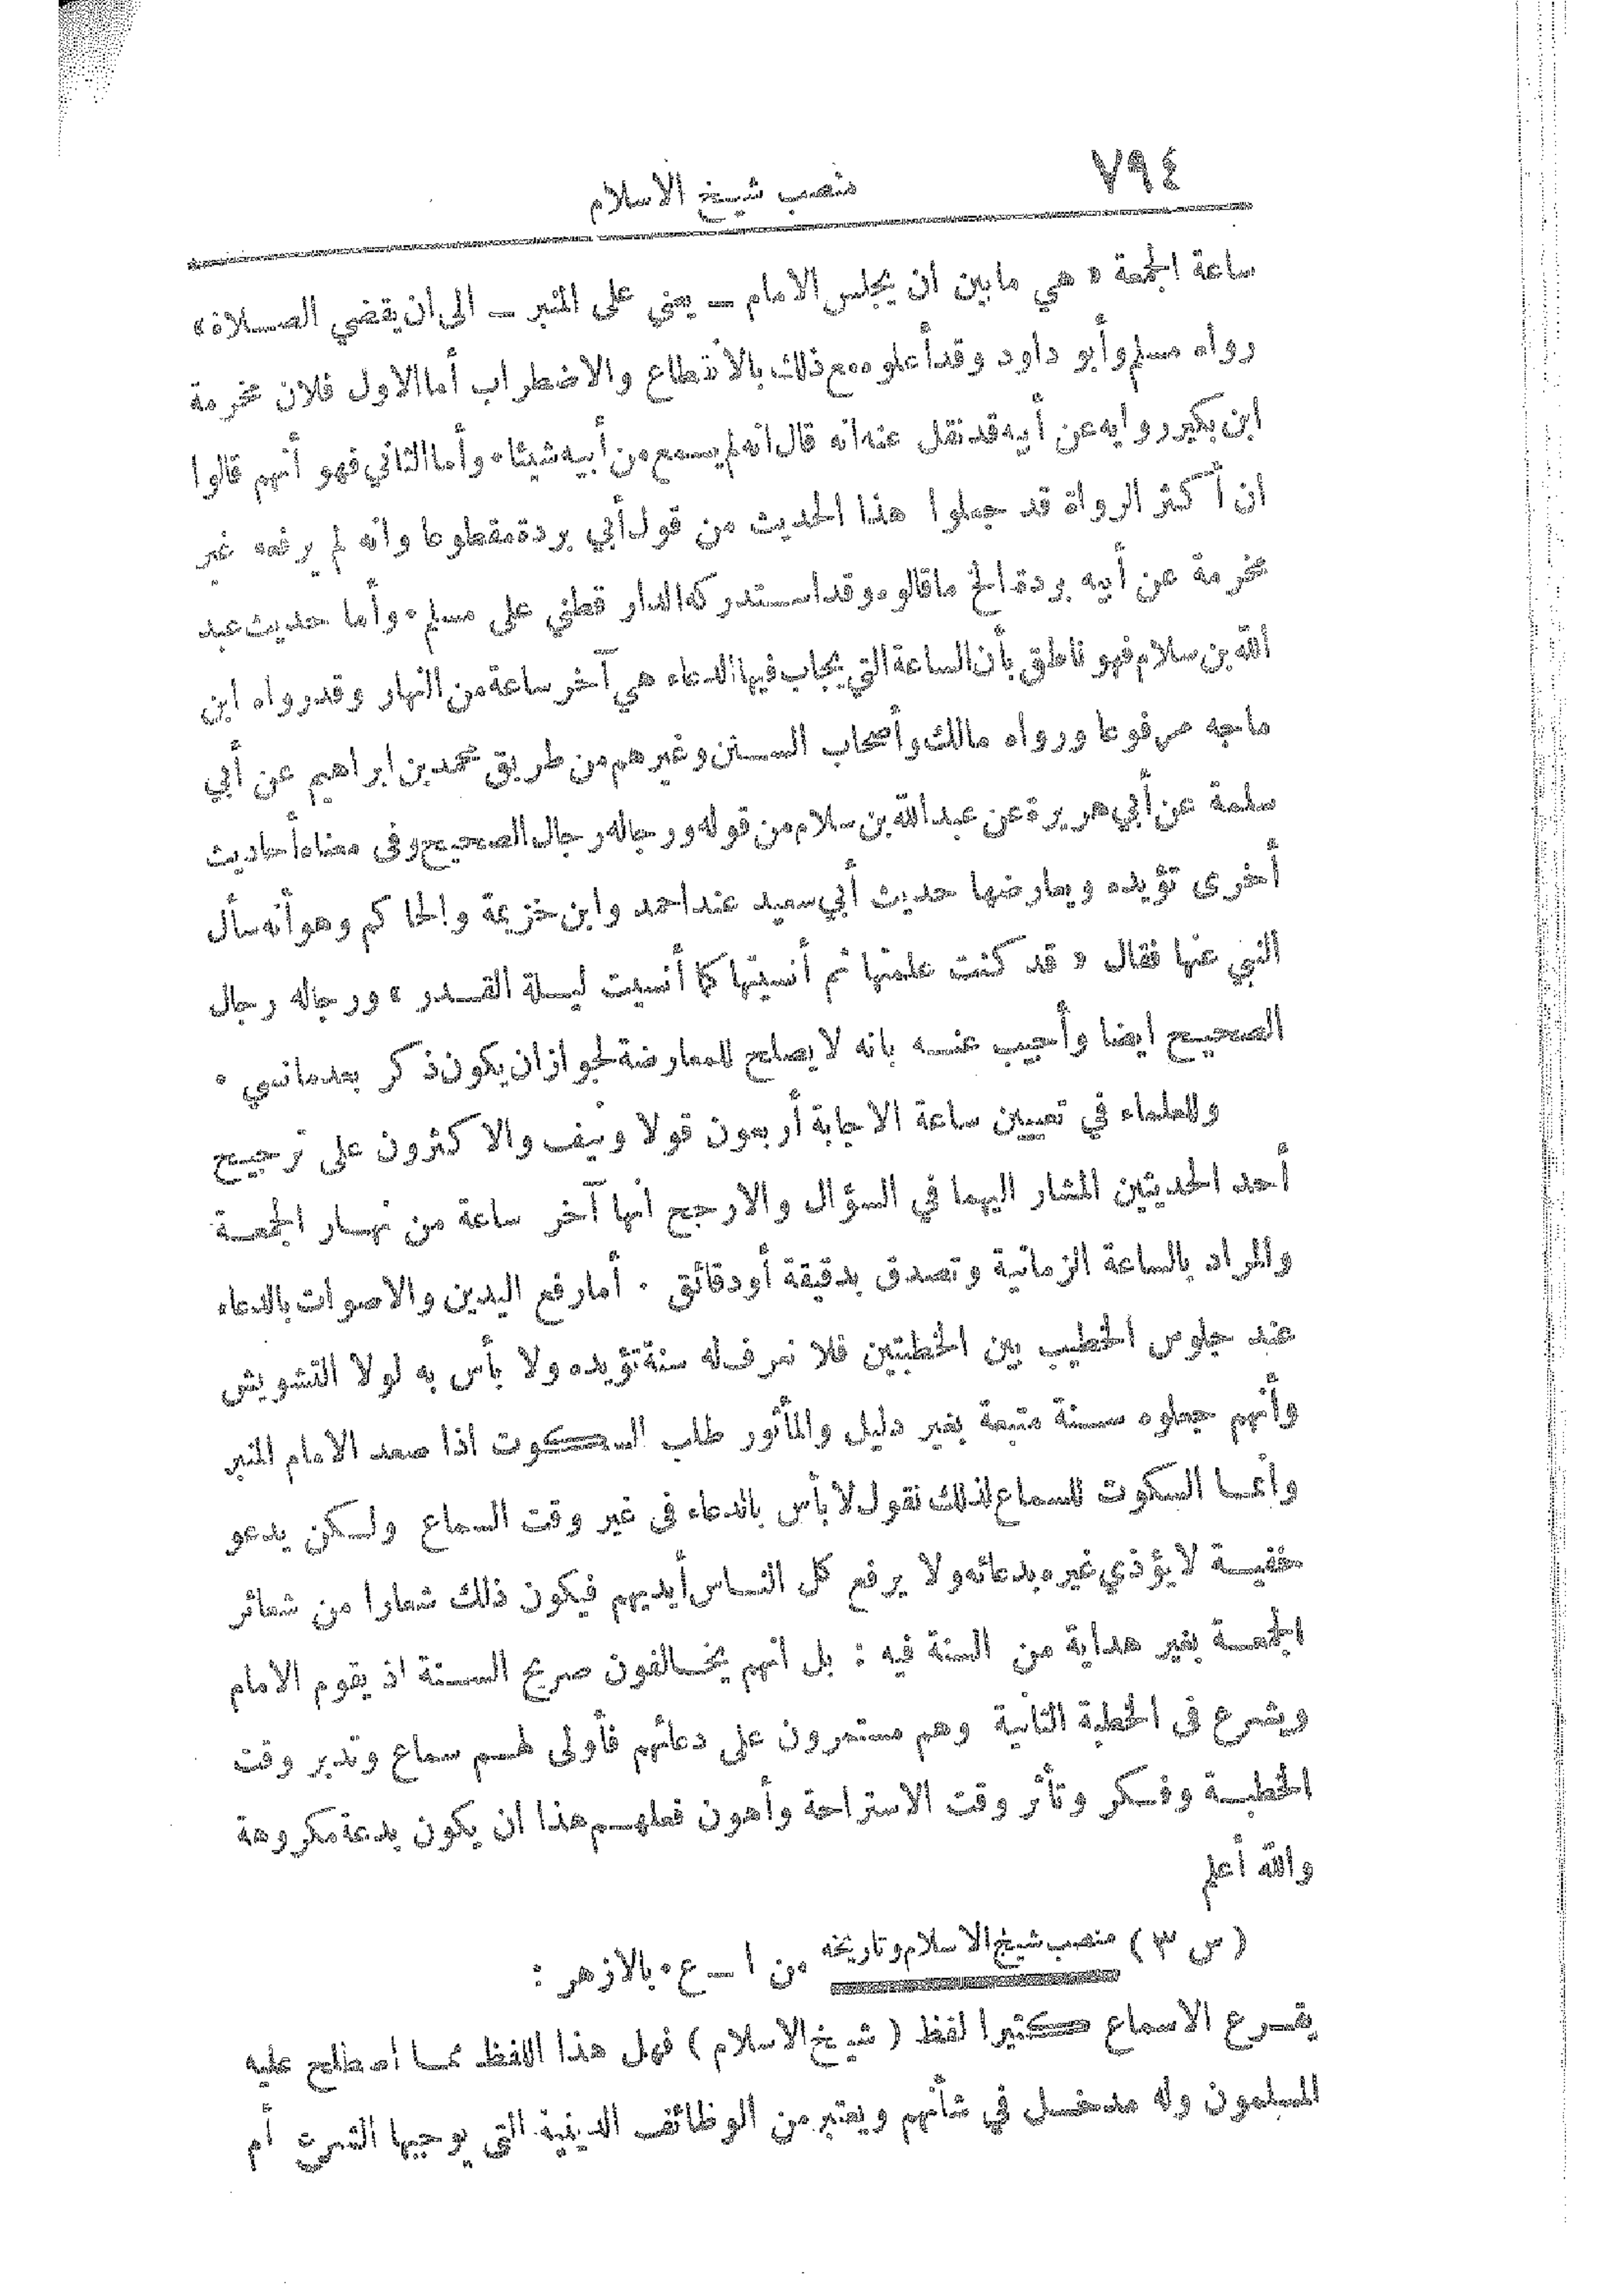 ٧٩٤
منصب شيخ الاسلام
ساعة الجمعة « هي مابين ان يجلس الامام — يعني على المنبر — الى ان يقضي الصلاة »
رواه مسلم وأبو داود وقد أعلوه مع ذلك بالانقطاع والاضطراب أما الاول فلان مخرمة
ابن بكير روايه عن أبيه قد نقل عنه انه قال انه لم يسمع من أبيه شيئا ٠ وأما الثاني فهو أنهم قالوا
ان أكثر الرواة قد جعلوا هذا الحديث من قول أبي بردة مقطوعا وانه لم يرفعه غير
مخرمة عن أبيه بردة الخ ماقالوه وقد استدركه الدار قطني على مسلم ٠ وأما حديث عبد
الله بن سلام فهو ناطق بأن الساعة التي يجاب فيها الدعاء هي آخر ساعة من النهار وقد رواه ابن
ماجه مرفوعا ورواه مالك وأصحاب السنن وغيرهم من طريق محمد بن ابراهيم عن أبي
سلمة عن أبي هريرة عن عبد الله بن سلام من قوله ورجاله رجال الصحيح وفى معناه أحاديث
أخرى تؤيده ويعارضها حديث أبي سعيد عند احمد وابن خزيمة والحاكم وهو أنه سأل
النبي عنها فقال « قد كنت علمتها ثم أنسيتها كما أنسيت ليلة القدر » ورجاله رجال
الصحيح ايضا وأجيب عنه بانه لا يصلح للمعارضة لجواز ان يكون ذكر بعد مانسي ٠
وللعلماء في تعيين ساعة الاجابة أربعون قولا ونيف والاكثرون على ترجيح
أحد الحديثين المشار اليهما في السؤال والارجح انها آخر ساعة من نهار الجمعة
والمراد بالساعة الزمانية وتصدق بدقيقة أو دقائق ٠ أما رفع اليدين والاصوات بالدعاء
عند جلوس الخطيب بين الخطبتين فلا نعرف له سنة تؤيده ولا بأس به لولا التشويش
وأنهم جعلوه سنة متبعة بغير دليل والمأثور طلب السكوت اذا صعد الامام المنبر
وانما السكوت للسماع لذلك نقول لا بأس بالدعاء فى غير وقت السماع ولكن يدعو
خفية لا يؤذي غيره بدعائه ولا يرفع كل الناس أيديهم فيكون ذلك شعارا من شعائر
الجمعة بغير هداية من السنة فيه : بل انهم يخالفون صريح السنة اذ يقوم الامام
ويشرع فى الخطبة الثانية وهم مستمرون على دعائهم فأولى لهم سماع وتدبر وقت
الخطبة وفكر وتأثر وقت الاستراحة وأهون فعلهم هذا ان يكون بدعة مكروهة
والله أعلم
( س ٣ ) منصب شيخ الاسلام وتاريخه من ا — ع ٠ بالازهر :
يقرع الاسماع كثيرا لفظ ( شيخ الاسلام ) فهل هذا اللفظ مما اصطلح عليه
المسلمون وله مدخل في شأنهم ويعتبر من الوظائف الدينية التي يوجبها الشرع أم